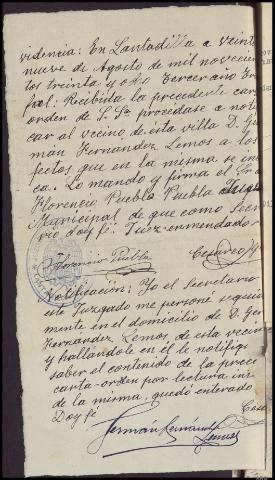 videncia: En Lantadilla a veinti
nueve de Agosto de mil novecien
tos treinta y ocho Tercer año Triun
fal. Recibida la precedente carta
orden de S. Sª procédase a notifi
car al vecino de esta villa D. Ger
mán Hernández Lemos a los
efectos que en la misma se indi
ca. Lo mando y firma el
Florencio Puebla Puebla
Municipal de que como Secreta
rio doy fé. Juez=enmendado=
Florencio Puebla
Cesareo
Notificación: Yo el Secretario
este Juzgado me personé seguida
mente en el domicilio de D. Ger
Hernández Lemos, de esta vecin
y hallándole en él le notifiqué
saber el contenido de la prece
carta-orden por lectura
de la misma, quedó enterado
Doy fé
Germán Hernández
Lemos